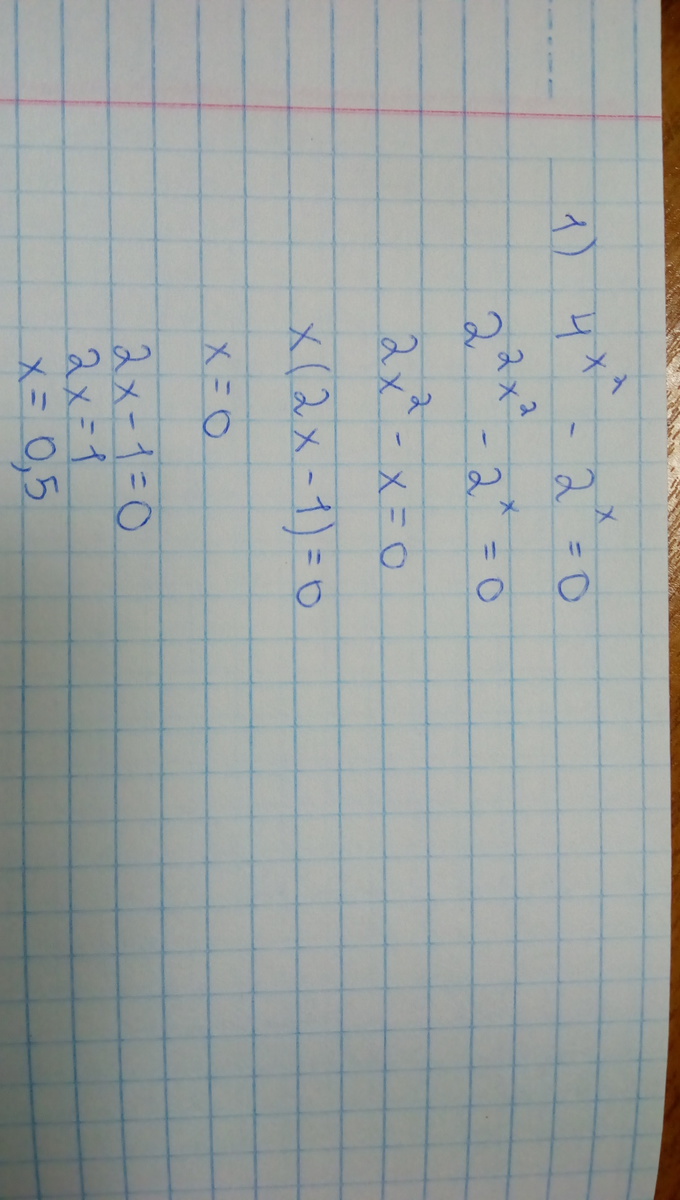 1) 4^x² - 2^x = 0
2^2x² - 2^x = 0
2x² - x = 0
x(2x - 1) = 0
x = 0
2x - 1 = 0
2x = 1
x = 0,5